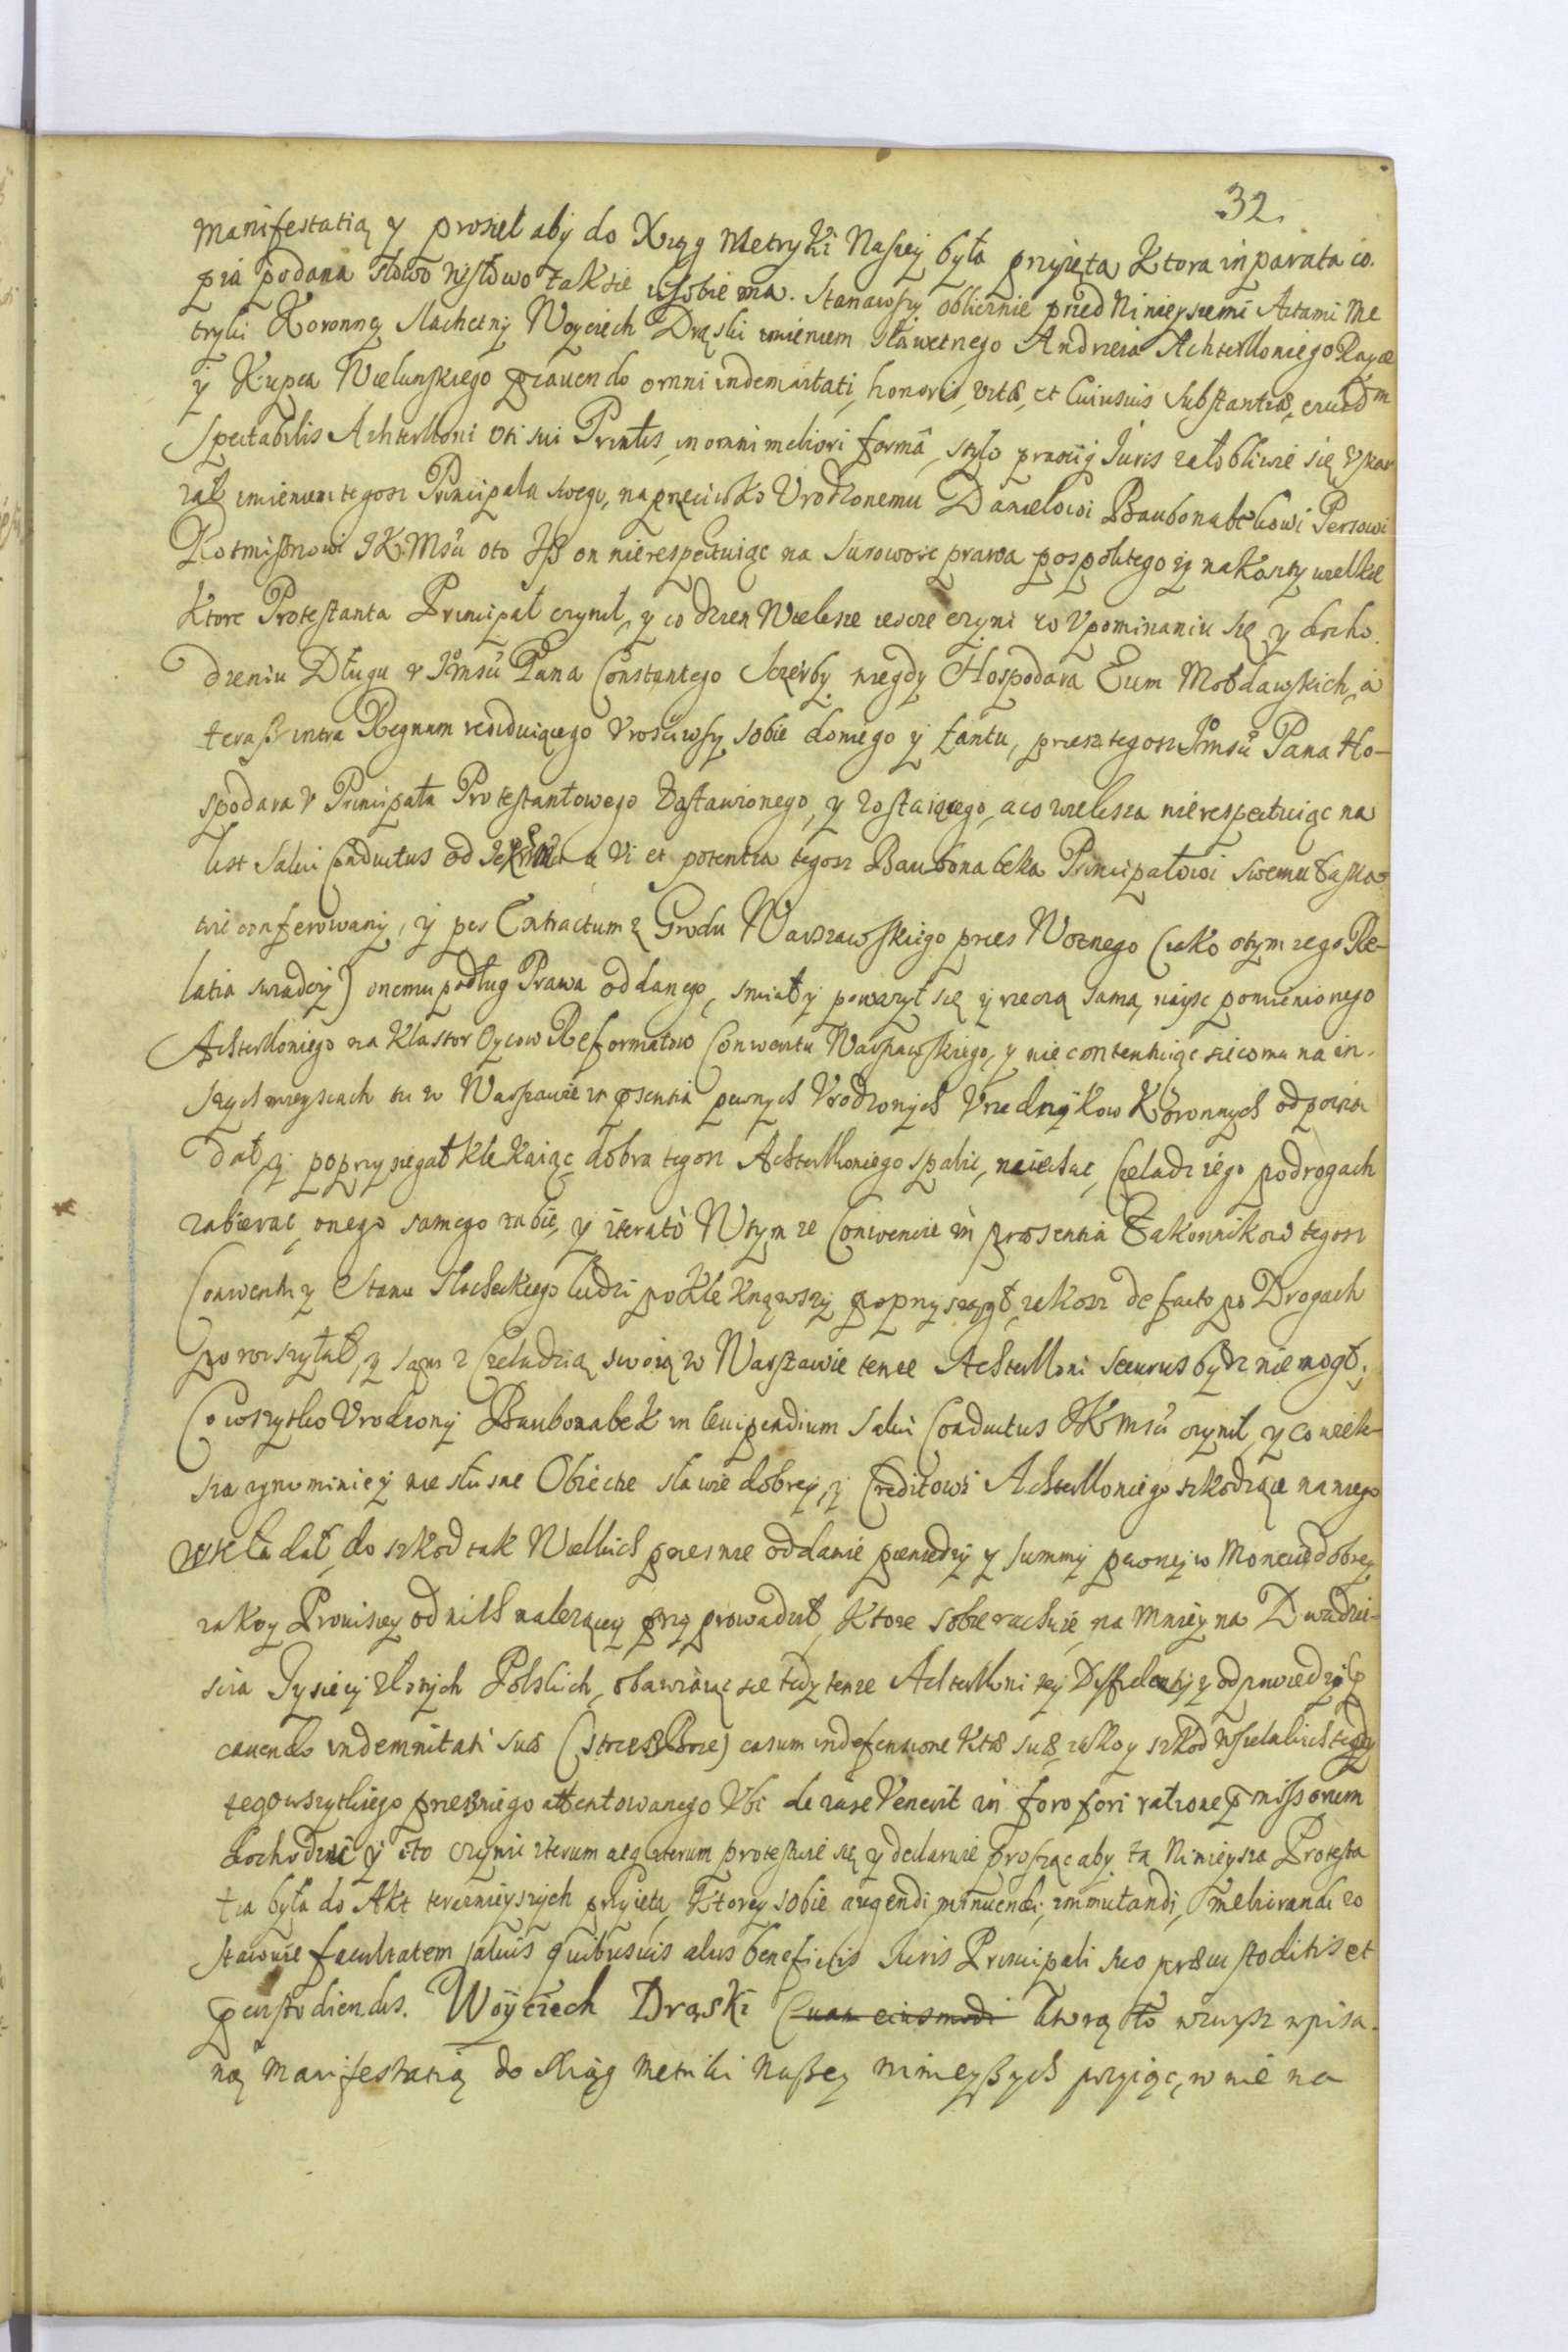 32.
Manifestatią y prosieł aby do Xiąg Metryki Naszey była przyięta Ktora in parata co.
pia podana słowo w słowo tak sie w sobie ma. Stanąwszy oblicznie przed Ninieyszemi Actami Me
tryki Koronney Slachetny Woyciech Drąski imieniem Sławetnego Andrzeia Achterlloniego Rayce
y Kupca Wielunskiego præcauendo omni indemnitati, honoris, vitæ, et Cuiusuis Substantiæ, eiusdm
Spectabilis Achterlloni vti sui Prnlis, in omni meliori formâ, stylo prauij Juris załobliwie się Vskar
zał imieniem tegosz Principała swego, na przeciwko Vrodzonemu Danielowi Baubonabekowi Persowi
Rotmistrzowi JKMsci oto Jsz on nierespectuiąc na surowosc prawa pospolitego y na koszty wielkie
Ktore Protestanta Principał czynił, y co dzien Wieksze iescze czyni w Vpominaniu się y docho
dzeniu Długu v Jmsci Pana Constantego Sczerby niegdy Hospodara Ziem Mołdawskich, a
terasz intra Regnum residuiącego Vrosciwszy sobie do niego y fantu, przesz tegosz Jmsci Pana Ho-
spodara v Principała Protestantowego Zastawionego, y zostaiącego, a co wieksza nierespectuiąc na
list Salui Conductus od a Vi et potentia tegosz Baubonabeka Principałowi swemu łaska
wie conferowany, y per Extractum z Grodu Warszawskiego przes Woznego (iako o tym iego Re-
latia swiadczy) onemu podług Prawa oddanego, smiał y powazył się y rzeczą samą naysc pomienionego
Achterlloniego na Klastor Oycow Reformatow Conwentu Warszawskiego, y nie contentuiąc sie comu na in.
szych mieyscach tu w Warszawie in psentia pewnych Vrodzonych Vrzednikow Koronnych odpowia
dał, y poprzysiegał klekaiąc dobra tegosz Achterlloniego spalic, naiechac, Czeladz iego po drogach
zabierac, onego samego zabic, y iterato W tym ze Conwencie in præsentia Zakonnikow tegosz
Conwentu y Stanu Slacheckiego ludzi poklęknąwszy poprzysiągł, iakosz de facto po Drogach
porosyłał, y sam z Czeladzią swoią w Warszawie tenze Achterlloni securus bydz nie mogł;
Co wszytko Vrodzony Baubonabek in leuipendium Salui Conductus JKMsci czynił, y co wiek-
sza mniey niesłusne Obiectie sławie dobrey, y Creditowi Achterlloniego szkodzące na niego
wkładał, do szkod tak Wielkich przes nie oddanie pieniedzy y summy pewney w Monecie dobrey
iakoy Prouisiey od nich nalezącey przyprowadził, Ktore sobie rachuie na mniey na Dwadzie-
scia Tysięcy złotych Polskich, obawiaiąc sie tedy tenze Achterlloni tey y odpowiedzi
cauendo indemnitati suæ (strzesz Boze) casum in defensione Vitæ suæ, iakoy szkod wszelakich tedy
tego wszytkiego przesz niego attentowanego Vbi de iure Venerit in foro fori ratione pmissorum
dochodzic y to czynic iterum atq iterum protestuie się y declaruie prosząc aby ta Ninieysza Protesta
tia była do Akt terazneyszych przyieta, Ktorey sobie augendi, minuendi, immutandi, meliorandi zo
stawuie facultatem saluis quibusuis alys beneficijs Juris Principali suo præcustoditis et
pcustodiendis. Woyciech Drąski Cuam eiusmodi Ktorą to wzwysz wpisa.
ną Manifestatią do Xiąg Metriki Naszey ninieyszych przyiąc, w nie na